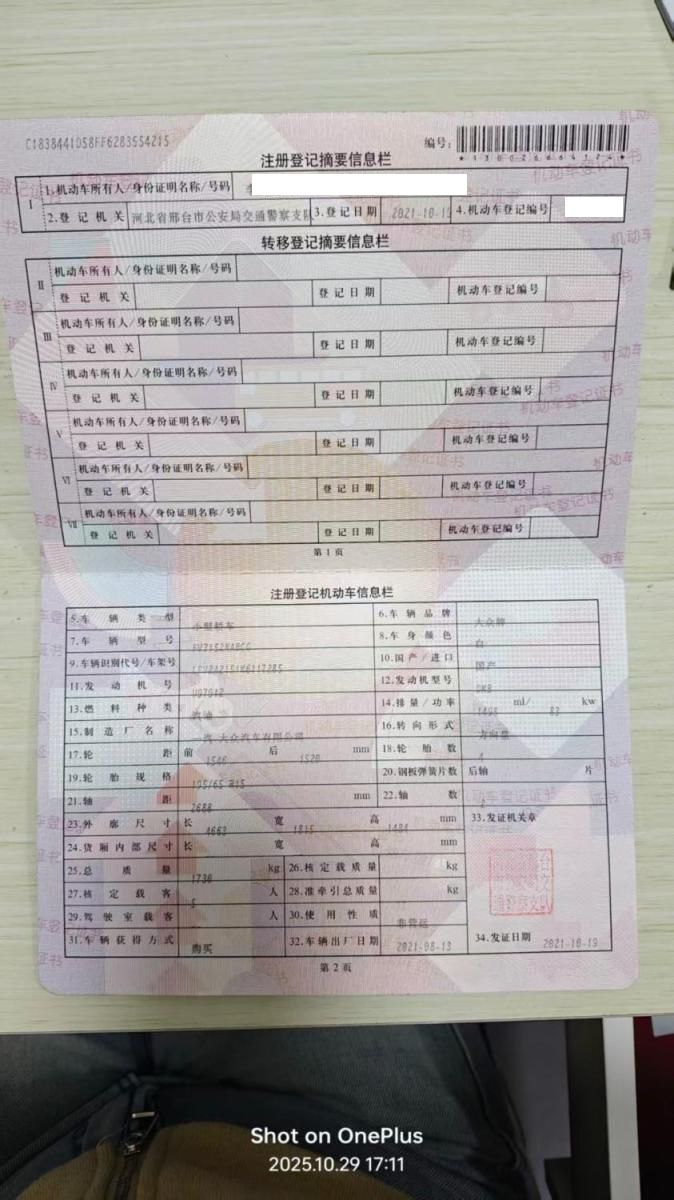 C1838441D58FF6283554215
编号:
*130026664124*
注册登记摘要信息栏
Ⅰ 1.机动车所有人/身份证明名称/号码
2.登记机关 河北省邢台市公安局交通警察支队 3.登记日期 2021-10-19 4.机动车登记编号
转移登记摘要信息栏
Ⅱ 机动车所有人/身份证明名称/号码
登记机关 登记日期 机动车登记编号
Ⅲ 机动车所有人/身份证明名称/号码
登记机关 登记日期 机动车登记编号
Ⅳ 机动车所有人/身份证明名称/号码
登记机关 登记日期 机动车登记编号
Ⅴ 机动车所有人/身份证明名称/号码
登记机关 登记日期 机动车登记编号
Ⅵ 机动车所有人/身份证明名称/号码
登记机关 登记日期 机动车登记编号
Ⅶ 机动车所有人/身份证明名称/号码
登记机关 登记日期 机动车登记编号
第1页
注册登记机动车信息栏
5.车辆类型 小型轿车 6.车辆品牌 大众牌
7.车辆型号 8.车身颜色 白
9.车辆识别代号/车架号 10.国产/进口 国产
11.发动机号 12.发动机型号
13.燃料种类 汽油 14.排量/功率 1498 ml/ 83 kw
15.制造厂名称 一汽-大众汽车有限公司 16.转向形式 方向盘
17.轮距 前 1546 后 1520 mm 18.轮胎数 4
19.轮胎规格 195/65 R15 20.钢板弹簧片数 后轴 片
21.轴距 2688 mm 22.轴数 2
23.外廓尺寸 长 4663 宽 1815 高 1484 mm 33.发证机关章
24.货厢内部尺寸 长 宽 高 mm
25.总质量 1730 kg 26.核定载质量 kg
27.核定载客 5 人 28.准牵引总质量 kg
29.驾驶室载客 人 30.使用性质 非营运
31.车辆获得方式 购买 32.车辆出厂日期 2021-08-13 34.发证日期 2021-10-19
第2页
Shot on OnePlus
2025.10.29 17:11